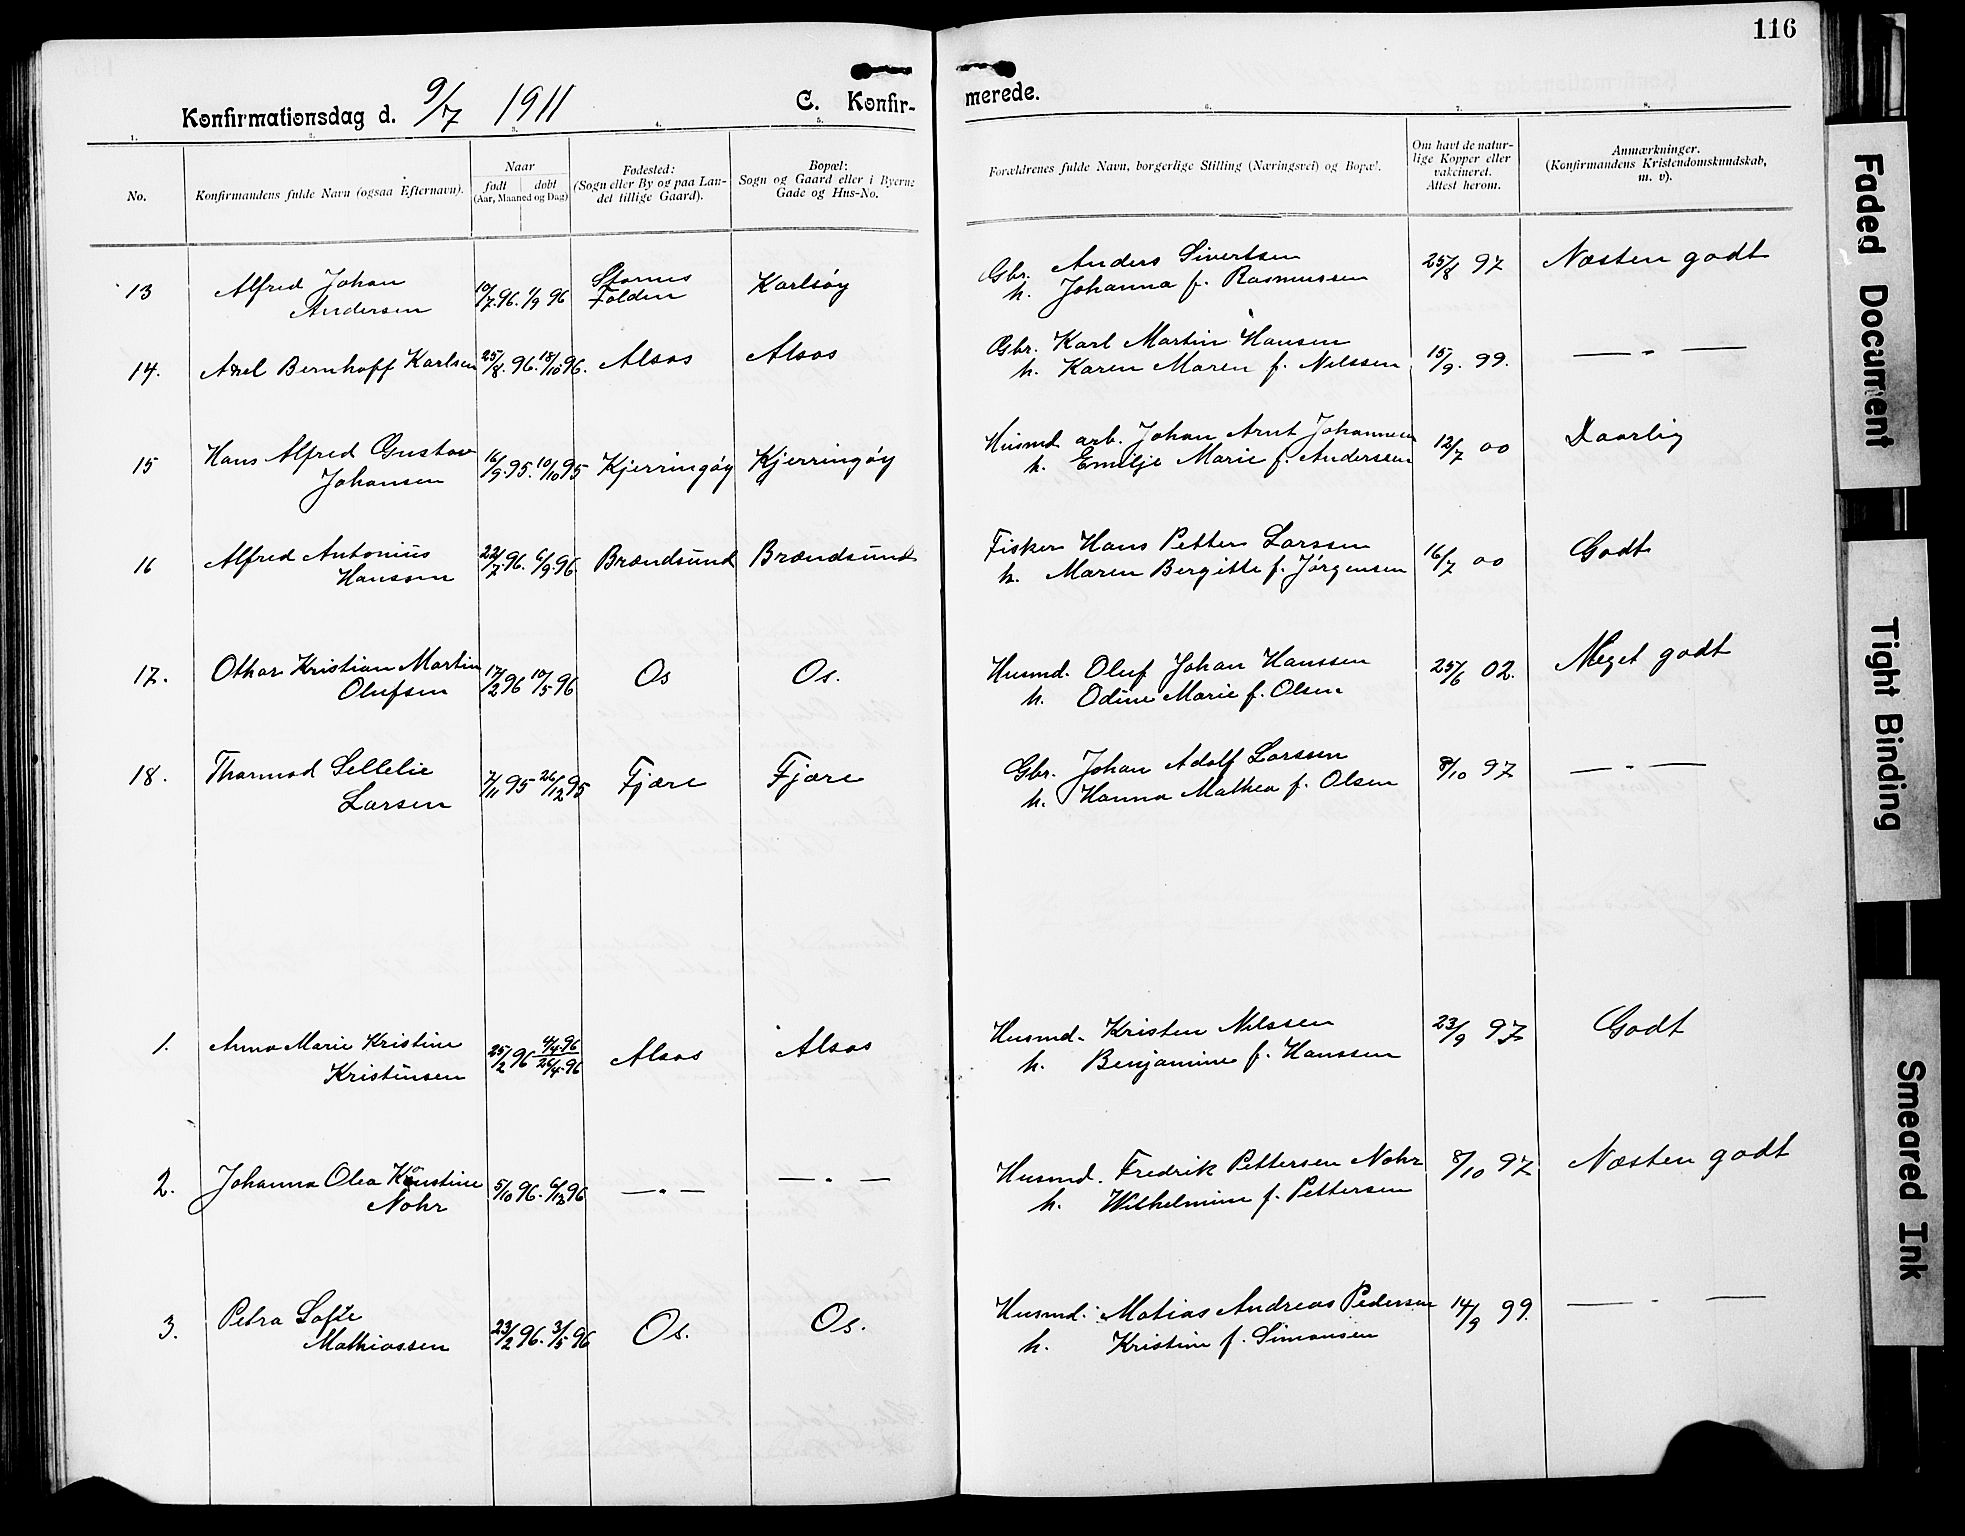 116
Konfirmationsdag d. 9/7 1911
C. Konfir-
merede.
1. 2. 3. 4. 5. 6. 7. 8.
No.
Konfirmandens fulde Navn (ogsaa Efternavn).
Naar
født døbt
(Aar, Maaned og Dag)
Fødested:
(Sogn eller By og paa Lan-
det tillige Gaard).
Bopæl:
Sogn og Gaard eller i Byern:
Gade og Hus-No.
Forældrenes fulde Navn, borgerlige Stilling (Næringsvei) og Bopæl.
Om havt de natur-
lige Kopper eller
vakcineret.
Attest herom.
Anmærkninger.
(Konfirmandens Kristendomskundskab,
m. v).
13 Alfred Johan
Andersen
10/7 96. 1/9 96
Folden
Karlsøy
Gbr. Anders Sivertsen
h. Johanna f. Rasmussen
25/8 97
Næsten godt
14. Axel Bernhoff Karlsen
25/8. 96. 18/10 96.
Alsos
Alsos
Gbr. Karl Martin Hansen
h. Karen Maren f. Nilssen
15/9. 99.
— " —
15 Hans Alfred Gustav
Johansen
16/9. 95. 10/10 95
Kjerringøy
Kjerringøy
Husmd. arb. Johan Arnt Johannesen
h. Emilje Marie f. Anderssen
12/7 00
Daarlig
16 Alfred Antonius
Hanssen
22/7 96. 6/9. 96
Brændsund
Brændsund
Fisker Hans Petter Larssen
h. Maren Bergitte f. Jørgensen
16/7 00
Godt
17. Othar Kristian Martin
Olufsen
17/2 96 10/5 96
Os
Os.
Husmd. Oluf Johan Hanssen
h. Odine Marie f. Olsen
25/6 02.
Meget godt
18. Thormod Sellelie
Larsen
7/11 95 26/12 95
Fjære
Fjære
Gbr. Johan Adolf Larssen
h. Hanna Mathea f. Olsen
8/10 97
— " —
1. Anna Marie Kristine
Kristensen
25/2 96
26/4. 96
Alsos
Alsos
Husmd. Kristen Nilssen
h. Benjamine f. Hanssen
23/9 97
Godt
2. Johanna Olea
Nohr
5/10 96. 6/12 96
— " —
— " —
Husmd. Fredrik Pettersen Nohr
h. Wilhelmine f. Pettersen
8/10 97
Næsten godt
3. Petra Sofie
Mathiassen
23/2 96. 3/5 96
Os.
Os.
Husmd. Matias Andreas Pedersen
h. Kristine f. Simonsen
14/9 99.
— " —
Faded Document
Tight Binding
Smeared Ink